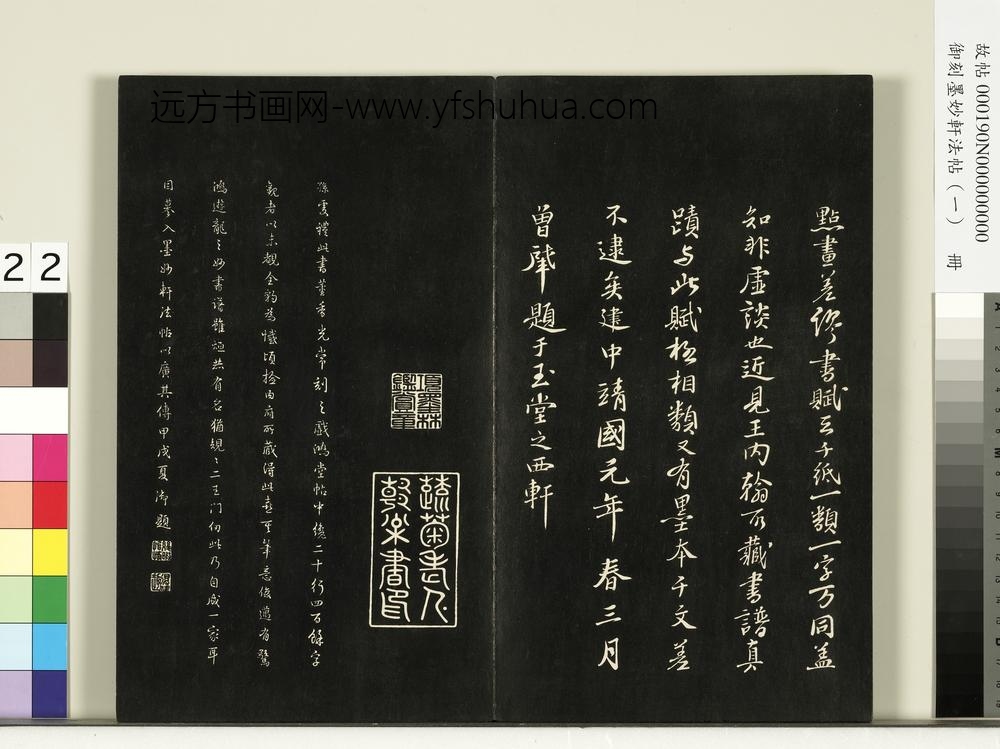 故帖 000190N000000000
御刻墨妙軒法帖（一） 冊
远方书画网-www.yfshuhua.com
點畫差繆書賦云千紙一類一字万同盖
知非虛談也近見王內翰所藏書譜真
蹟与此賦極相類又有墨本千文差
不逮矣建中靖國元年春三月
曾肈題于玉堂之西軒
孫虔禮此書董香光常刻之戲鴻堂帖中後二十行四百餘字
觀者以未覩全豹為憾頃撿內府所藏得此卷筆意俊邁有驚
鴻遊龍之妙書譜雖烜然有名猶規〻二王門仞此乃自成一家耳
目摹入墨妙軒法帖以廣其傳甲戌夏御題
22